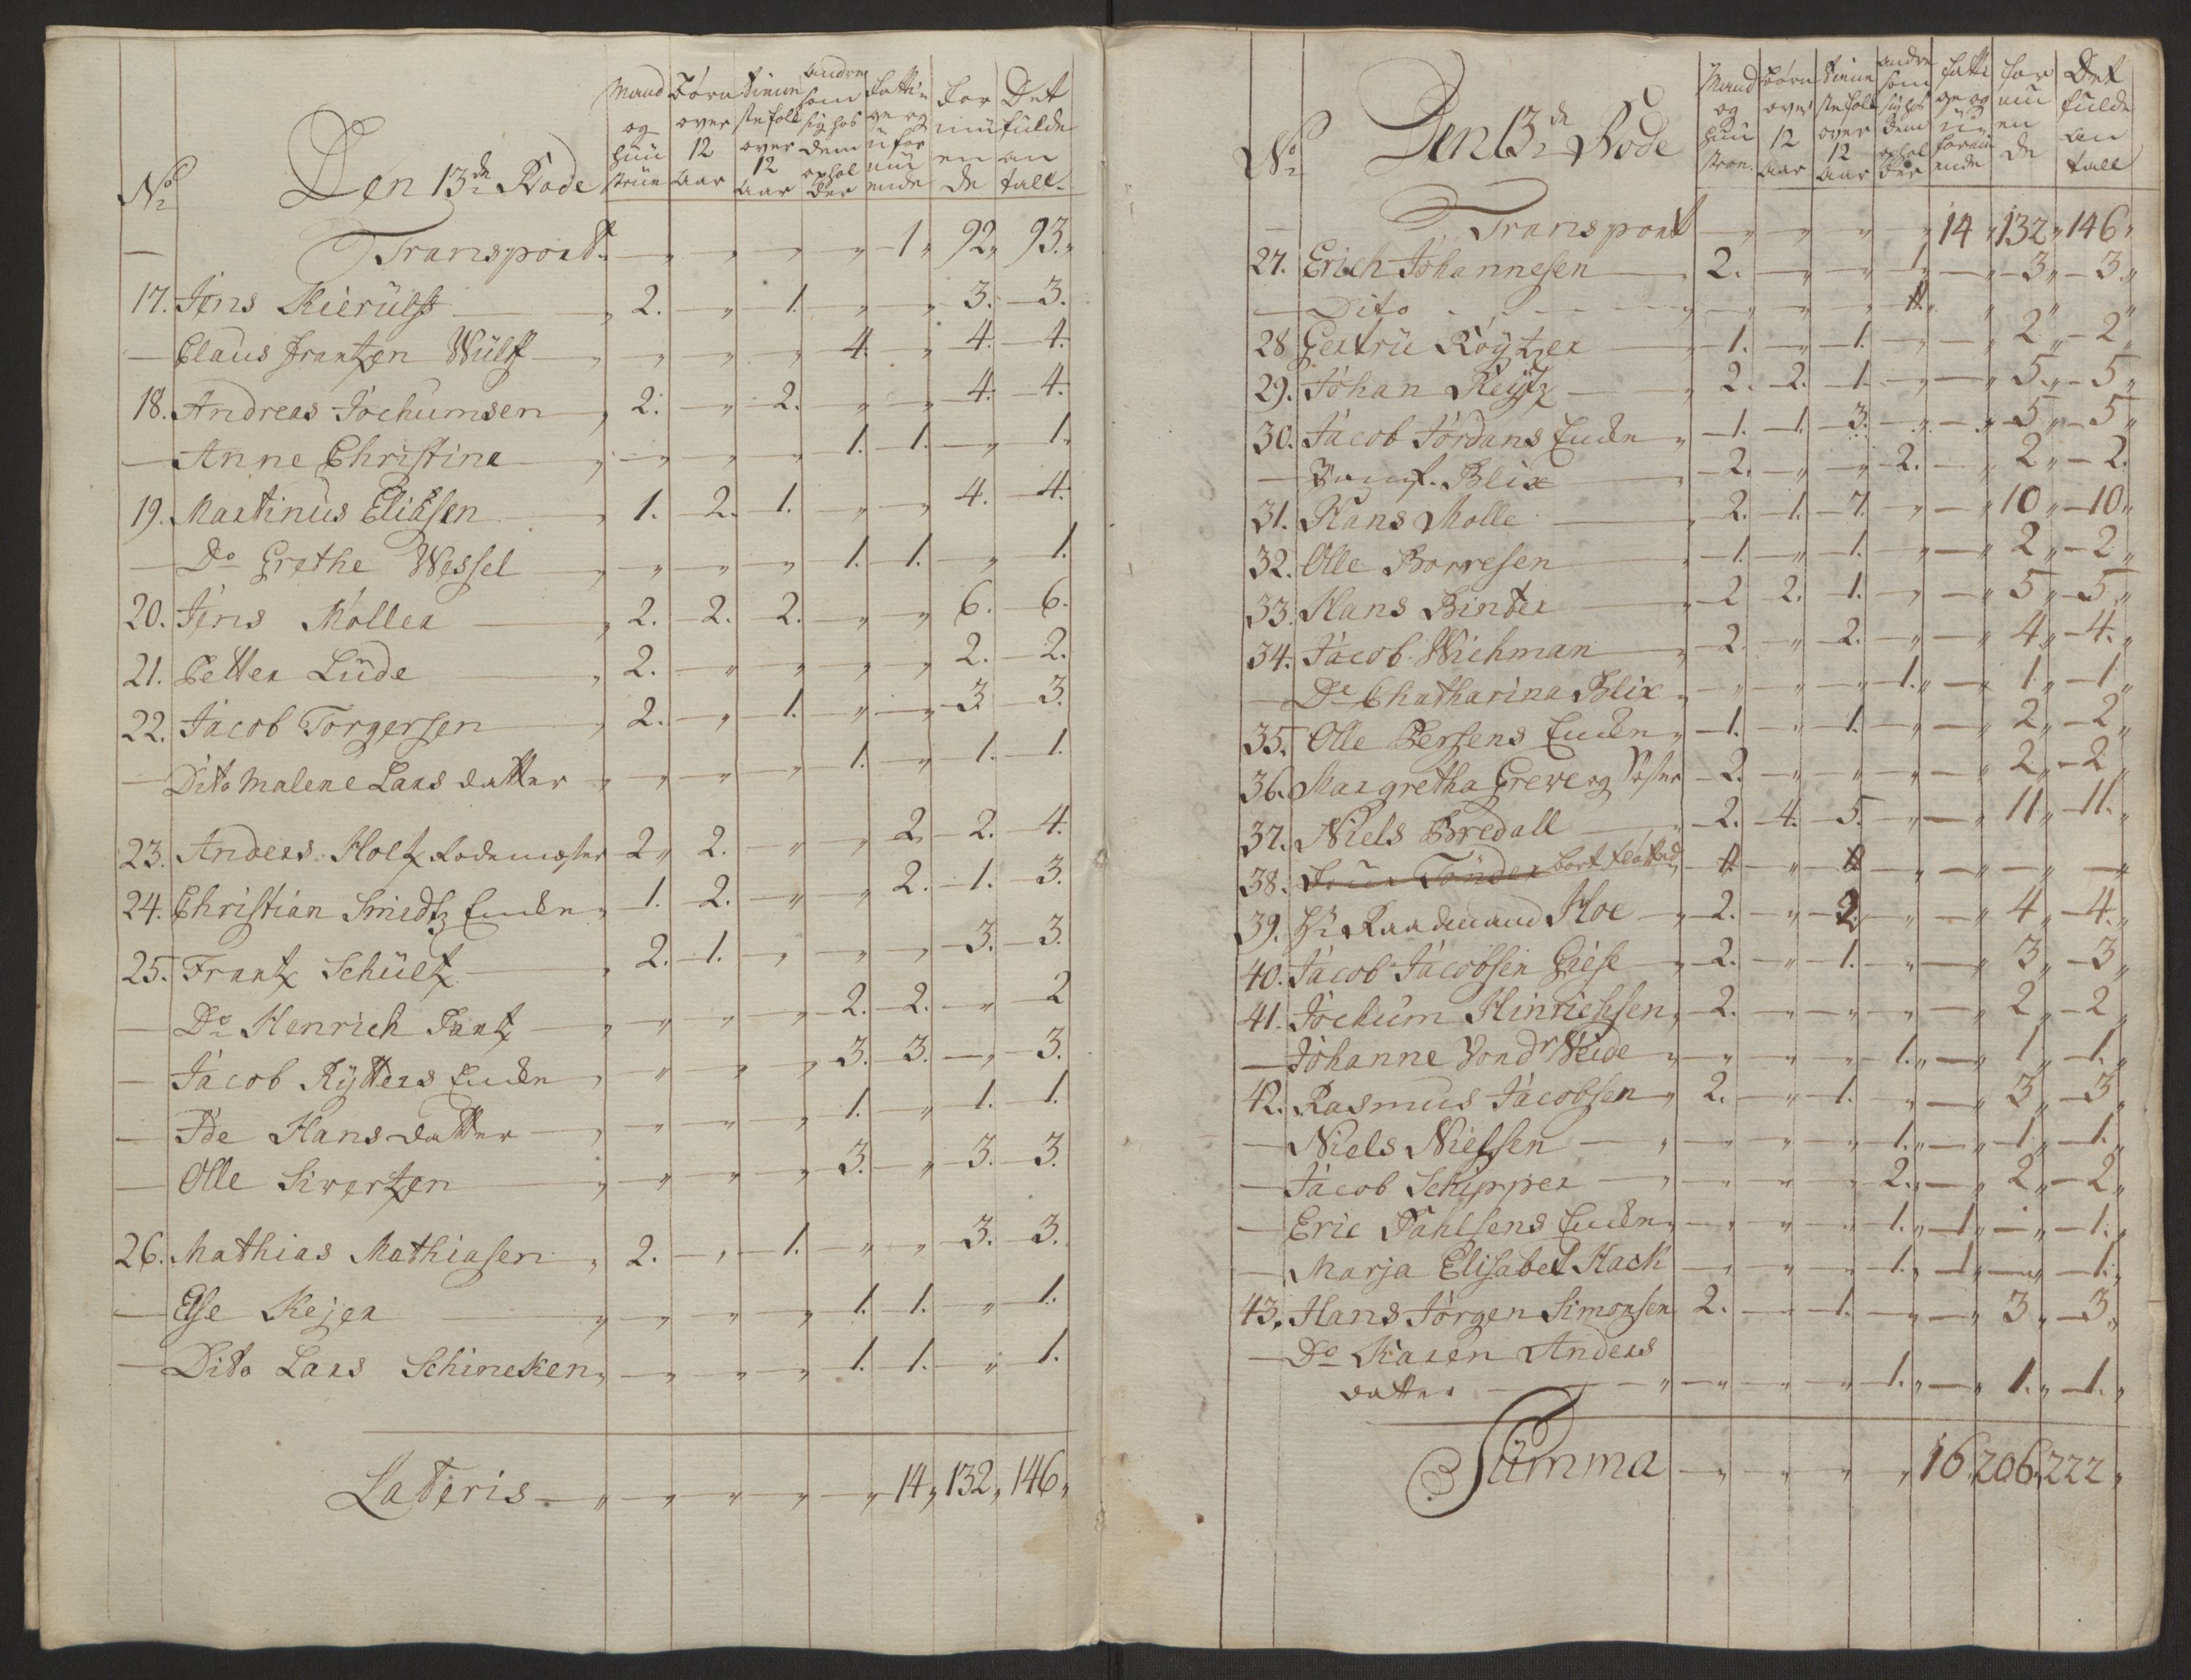 No
Den 13de Rode
Mand og Huustrue
Børn over 12 Aar
Tienne ste folk over 12 Aar
Andre som sig hos dem ophol der
Fatti ge og u for mu ende
For mu en de
Det fulde an tall.
— Transport. — " — " — " — " — 1 " 92 " 93 "
17. Jens Kierülff — " 2. — " 1. — " — " 3. — 3.
— Claus Frantzen Wülff — " — " — " — " 4. — " 4. — 4.
18. Andreas Jochumsen — " 2. — " 2. — " — " 4. — 4.
— Anne Christina — " — " — " — " 1. — 1. — " 1.
19. Martinus Eliasen — " 1. — 2. — 1. — " — " 4. — 4.
— Do Grethe Wessel — " — " — " — " 1. — 1. — " 1.
20. Jens Møller — " 2. — 2. — 2. — " — " 6. — 6.
21. Petter Lüde — " 2. — " — " — " — " 2. — 2.
22. Jacob Torgersen — " 2. — " 1. — " — " 3 — 3.
— Dito Malene Lars datter — " — " — " — " 1. — " 1. — 1.
23. Anders Holtz Rodemester 2 " 2. — " — " 2 — 2. — 4.
24. Christian Smidtz Encken " 1. — 2. — " — " 2. — 1. — 3.
25. Frantz Schültz — " 2. — 1. — " — " — " 3. — 3.
— Do Henrich Fantz — " — " — " — " 2. — 2. — " 2
— Jacob Rÿtters Encken — " — " — " — " 3. — 3. — " 3.
— Ide Hans datter — " — " — " — " 1. — " 1. — 1.
— Olle Sivertzen — " — " — " — " 3. — " 3. — 3.
26. Mathias Mathiasen — " 2. — " 1. — " — " 3. — 3.
— Else Rejer — " — " — " — " 1. — 1. — " 1.
— Dito Lars Schineken " — " — " — " 1. — 1. — " 1.
Lateris — " — " — " — " — " 14 " 132 " 146 "
No
Den 13de Rode
Mand og Huu strue.
Børn over 12 Aar
Tienne ste folk over 12 Aar
Andre som sig hos dem ophol der
Fatti ge og u forau ende
For mu en de
Det fulde an tall
— Transport — " — " — " — " 14 " 132 " 146 "
27. Erich Johannesen — " 2. — " — " — " — " 3 " — 3 "
— Dito - - - - " — " — " — " " " "
28 Gertrü Röÿtzer — 1. — " 1. — " — " 2 " — 2 "
29. Johan Reÿtz — " 2. — 2. — 1. — " — " 5 " — 5 "
30. Jacob Jördans Encke " — 1. — 1. — 3. — " — " 5 " — 5 "
— Blix — 2. — " — " 2. — " 2 " — 2.
31. Hans Molle — " 2. — 1. — 7. — " — " 10 " — 10 "
32. Olle Borresen — " 1. — " 1. — " — " 2 " — 2 "
33. Hans Binder — " 2 — 2. — 1. — " — " 5 " — 5 "
34. Jacob Wichman — " 2. — " 2. — " — " 4 " — 4. "
— Do Chatharina Blix " — " — " — " 1. " — " 1 " — 1 "
35. Olle Persens Encken " — 1. — " 1. — " — " 2 " — 2 "
36. Margretha Greve og Søster — 2. — " — " — " — " 2 " — 2 "
37. Niels Bredall — " 2. — 4. — 5. — " — " 11 " — 11. "
38. Tönder bort fløtted — " — " — " — " — " — "
39. Hr Raadmand Hoe — " 2. — " 2. — " — " 4 " — 4. "
40. Jacob Jacobsen Giese — " 2. — " 1. — " — " 3 " — 3 "
41. Jochum Hinrichsen " — 2. — " — " — " — " 2 " — 2 "
— Johanne Vondr Weide " — " — " — " 1. " — " 1 " — 1. "
42. Rasmus Jacobsen — " 2. — " 1. — " — " 3 " — 3 "
— Niels Nielsen — " — " — " — " 1. " — " 1 " — 1. "
— Jacob Schipper — " — " — " — " 2. " — " 2 " — 2 "
— Eric Pahlsens Encken " — " — " — " 1. " — 1 " — " — 1. "
— Marja Elisabet Hack — " — " — " 1. " — 1 " — " — 1. "
43. Hans Jörgen Simonsen 2. — " 1. — " — " 3 " — 3 "
— Do Karen Anders
datter — " — " — " — " 1. " — " 1. " — 1. "
Summa — " — " — " — " 16 " 206 " 222 "